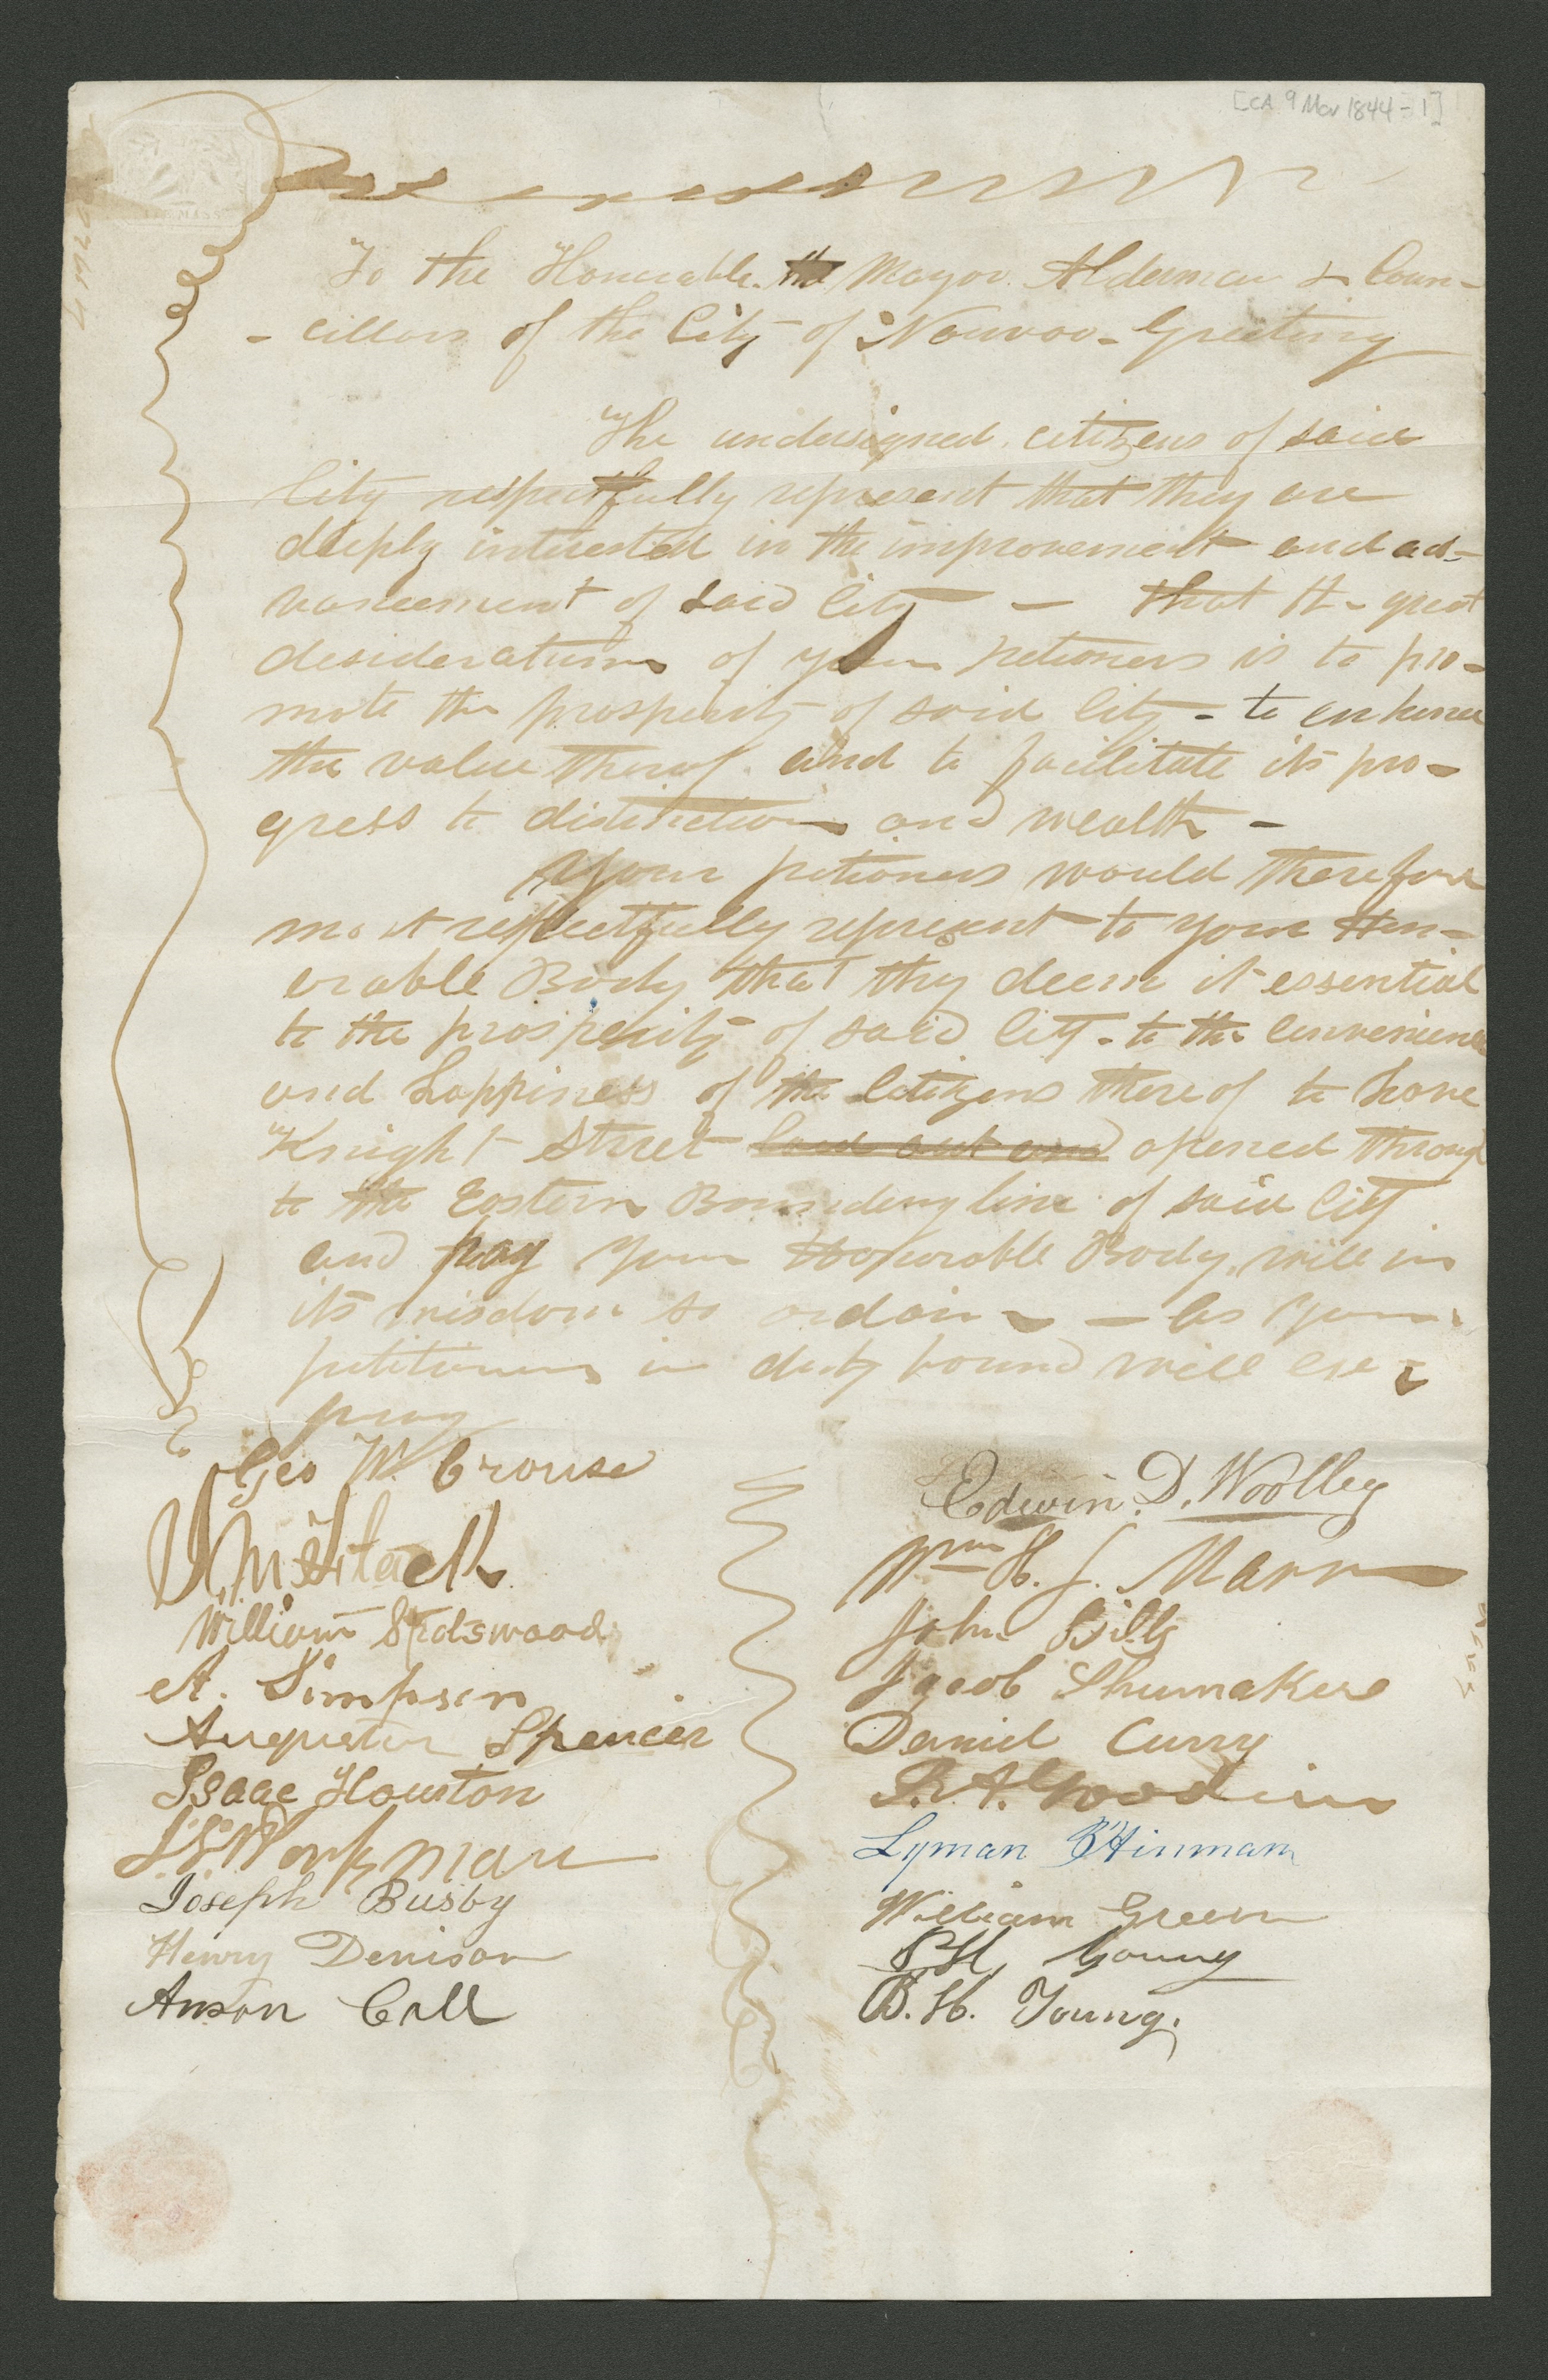 [CA 9 Mar 1844 - 1]
To the Honorable. the Mayor. Alderman & Coun-
- cillors of the City of Nauvoo - Greeting
The undersigned. citizens of said
City respectfully represent that they are
deeply interested in the improvement and ad-
vancement of said City — that the great
desideratum of your petioners is to pro-
mote the prosperity of said City - to enhance
the value thereof. and to facilitate its pro-
gress to distinction and wealth -
Your petioners would therefore
most respectfully represent to your Hon-
orable Body that they deem it essential
to the prosperity of said City - to the convenience
and happiness of the Citizens thereof to have
Knight Street laid out and opened through
to the Eastern Boundery line of said City
and pray your Honorable Body, will in
its wisdom so ordain — as your
petitioners in duty bound will ever
pray
Geo W. Crouse
William Spotswood
A. Simpson
Augustus Spencer
Isaac Houston
Workman
Joseph Busby
Henry Denison
Anson Call
Edwin. D. Woolley
Wm H. J. Marr
John Bills
Jacob Shumaker
Daniel Curry
Goodwin
Lyman Hinman
William Green
Young
B. H. Young.